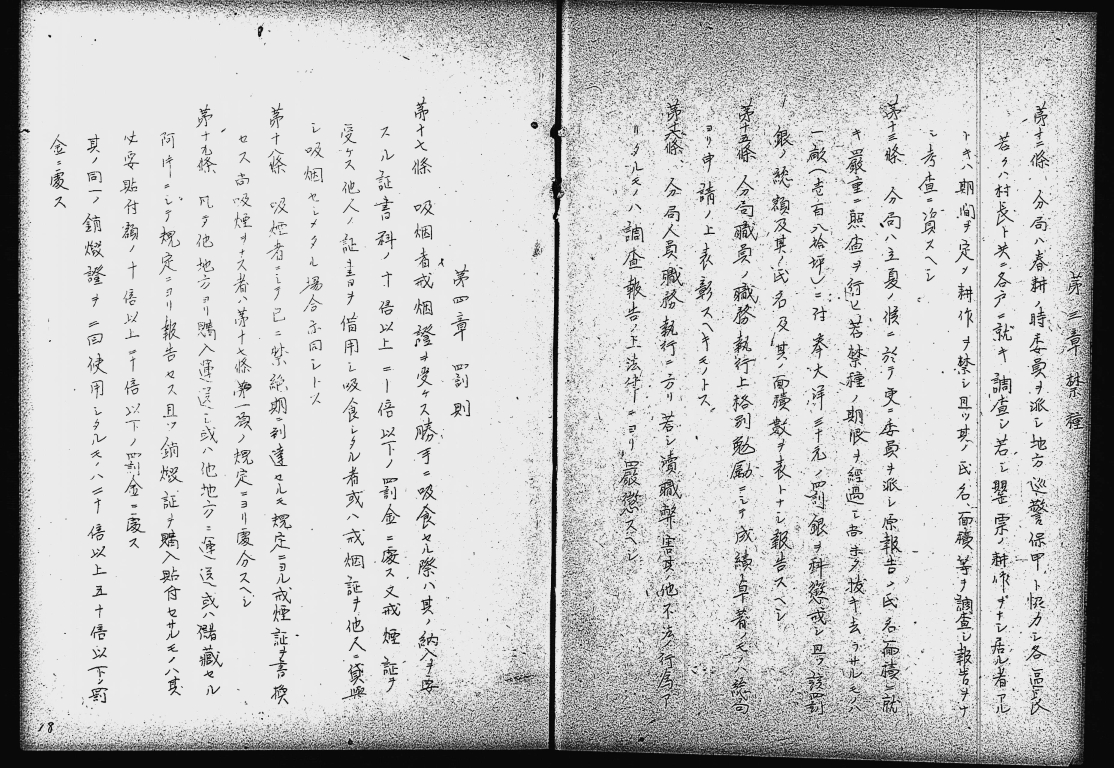 第三章 禁種
第十二條 分局ハ春耕ノ時委員ヲ派シ地方巡警保甲ト協力シ各區長
若クハ村長ト共ニ各戸ニ就キ調査シ若シ罌粟ノ耕作ヲナシ居ル者アル
トキハ期間ヲ定メ耕作ヲ禁シ且ツ其ノ氏名、面積等ヲ調査シ報告ヲナ
シ考査ニ資スヘシ
第十三條 分局ハ立夏ノ候ニ於テ更ニ委員ヲ派シ原報告ノ氏名面積ニ就
キ嚴重ニ照査ヲ行ヒ若禁種ノ期限ヲ経過シ尚未タ拔キ去ラサルモノハ
一畝(壱百八拾坪)ニ対シ奉大洋三十元ノ罰銀ヲ科懲戒シ且ツ該罰
銀ノ総額及其ノ氏名及其ノ面積数ヲ表トナシ報告スヘシ
第十五條 分局職員ノ職務執行上格別勉勵ニシテ成績卓著ノモノハ総局
ヨリ申請ノ上表彰スヘキモノトス
第十六條 分局人員職務執行ニ方リ若シ瀆職弊害其ノ他不法ノ行為ア
リタルモノハ調査報告ノ上法律ニヨリ嚴懲スヘシ
第四章 罰則
第十七條 吸烟者戒烟證ヲ受ケス勝手ニ吸食セル際ハ其ノ納入ヲ要
スル証書料ノ十倍以上二十倍以下ノ罰金ニ處ス又戒煙証ヲ
受ケス他人ノ証書ヲ借用シ吸食シタル者或ハ戒烟証ヲ他人ニ貸與
シ吸烟セシメタル場合亦同シトス
第十八條 吸煙者ニシテ已ニ禁絶期到達セルモ規定ニヨル戒煙証ヲ書換
セス尚吸煙ヲナス者ハ第十七條第一項ノ規定ニヨリ處分スヘシ
第十九條 凡テ他地方ヨリ購入運送シ或ハ他地方ニ運送或ハ儲藏セル
阿片ニシテ規定ニヨリ報告セス且ツ銷燬証ヲ購入貼付セサルモノハ其
必要貼付額ノ十倍以上二十倍以下ノ罰金ニ處ス
其ノ同一ノ銷燬證ヲ二回使用シタルモノハ三十倍以上五十倍以下ノ罰
金ニ處ス
18